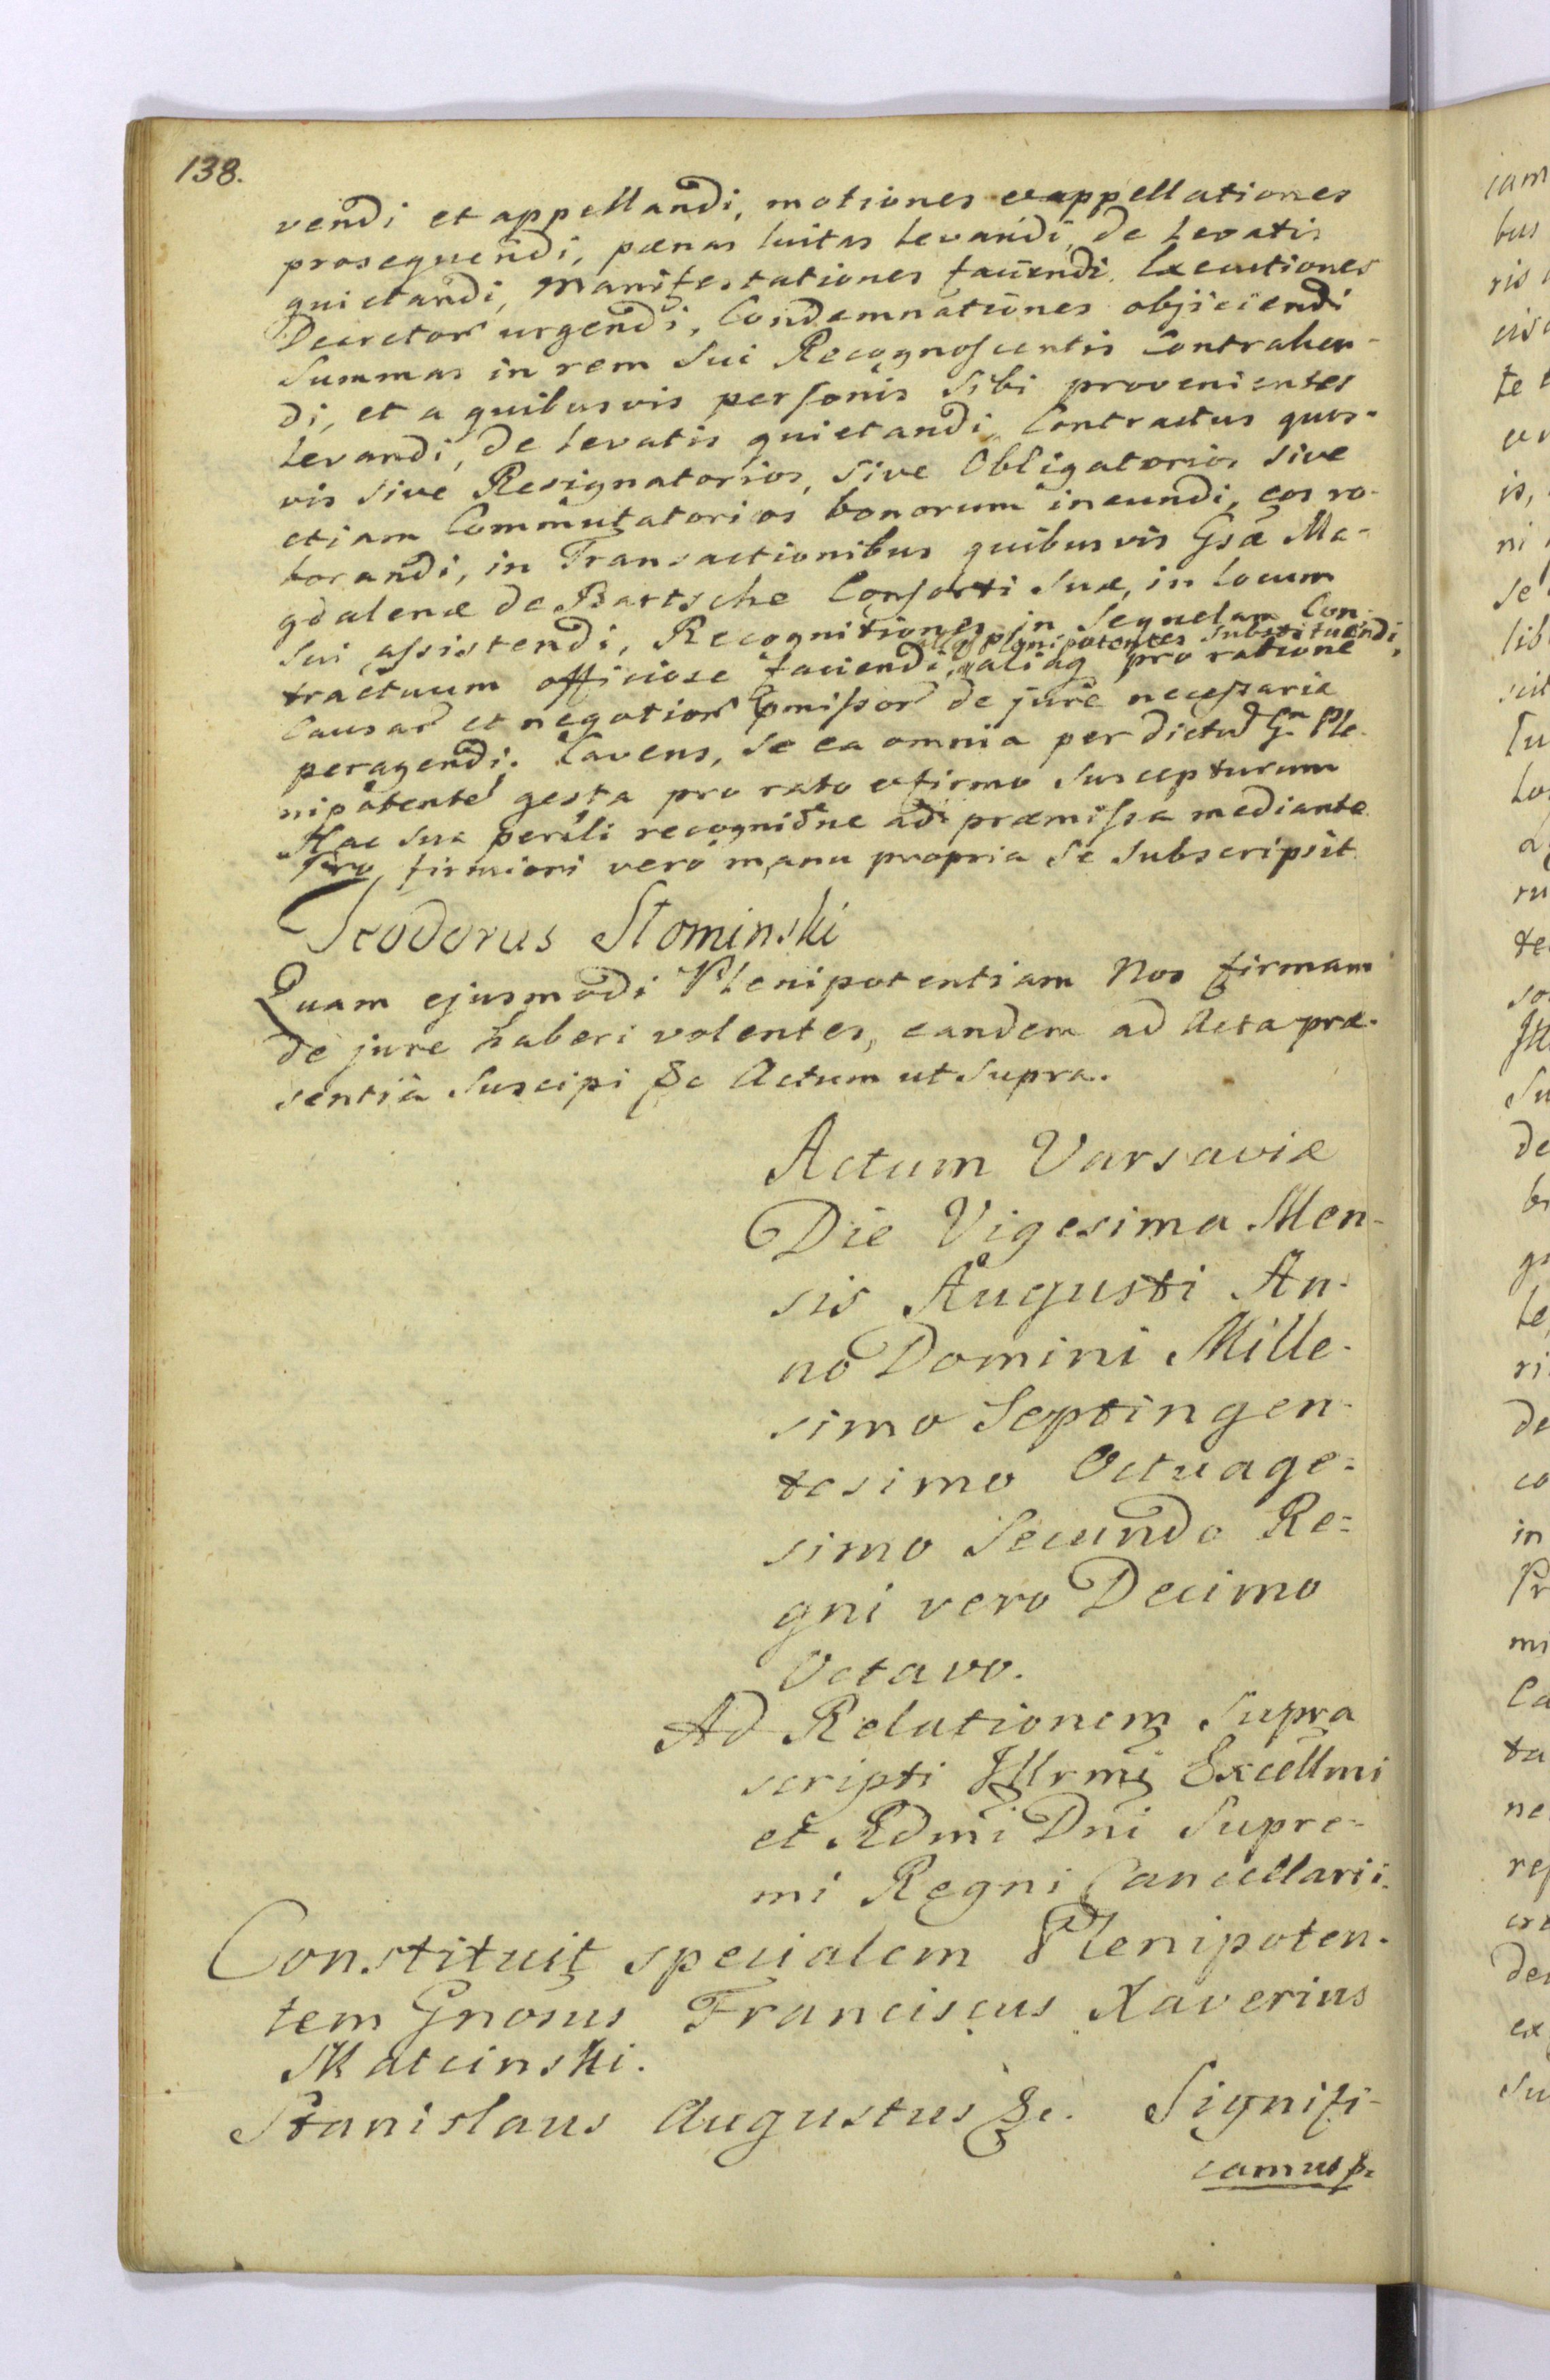 138.
vendi et appellandi, motiones et appellationes
prosequendi, pænas luitas levandi, de levatis
quietandi, Manifestationes faciendi, Executiones
Decretor urgendi, Condemnationes objiciendi
Summas in rem Sui Recognoscentis Contrahen-
di, et a quibusvis personis Sibi provenientes
levandi, de levatis quietandi, Contractus quos-
vis sive Resignatorios, sive Obligatorios sive
etiam Commutatorios bonorum ineundi, eos ro-
borandi, in Transactionibus quibusvis Gsæ Ma-
gdalenæ de Bartsche Consorti Suæ, in locum
Sui assistendi, Recognitiones in Sequelam Con-
plenipotentes substituendi,
tractuum officiose faciendi, aliaq pro ratione
Causar et negotior pmissor de jure necessaria
peragendi. Cavens, se ea omnia per dictu Gn Ple-
nipotente gesta pro rato et firmo suscepturum
Hac sua perśli recognidne ad præmissa mediante
Pro firmiori vero manu propria se subscripsit
Teodorus Słominski
Quam ejusmodi Plenipotentiam Nos firmam
de jure haberi volentes, eandem ad Acta præ-
sentia Suscipi &c Actum ut Supra.
Actum Varsaviæ
Die Vigesima Men-
sis Augusti An-
no Domini Mille-
simo Septingen-
tesimo Octuage-
simo Secundo Re-
gni vero Decimo
Octavo.
Ad Relationem Supra
scripti Illrmi Excellmi
et Rdmi Dni Supre-
mi Regni Cancellarii.
Constituit specialem Plenipoten-
tem Gnosus Franciscus Xaverius
Skatcinski.
Stanislaus Augustus &c. Signifi-
camus p.